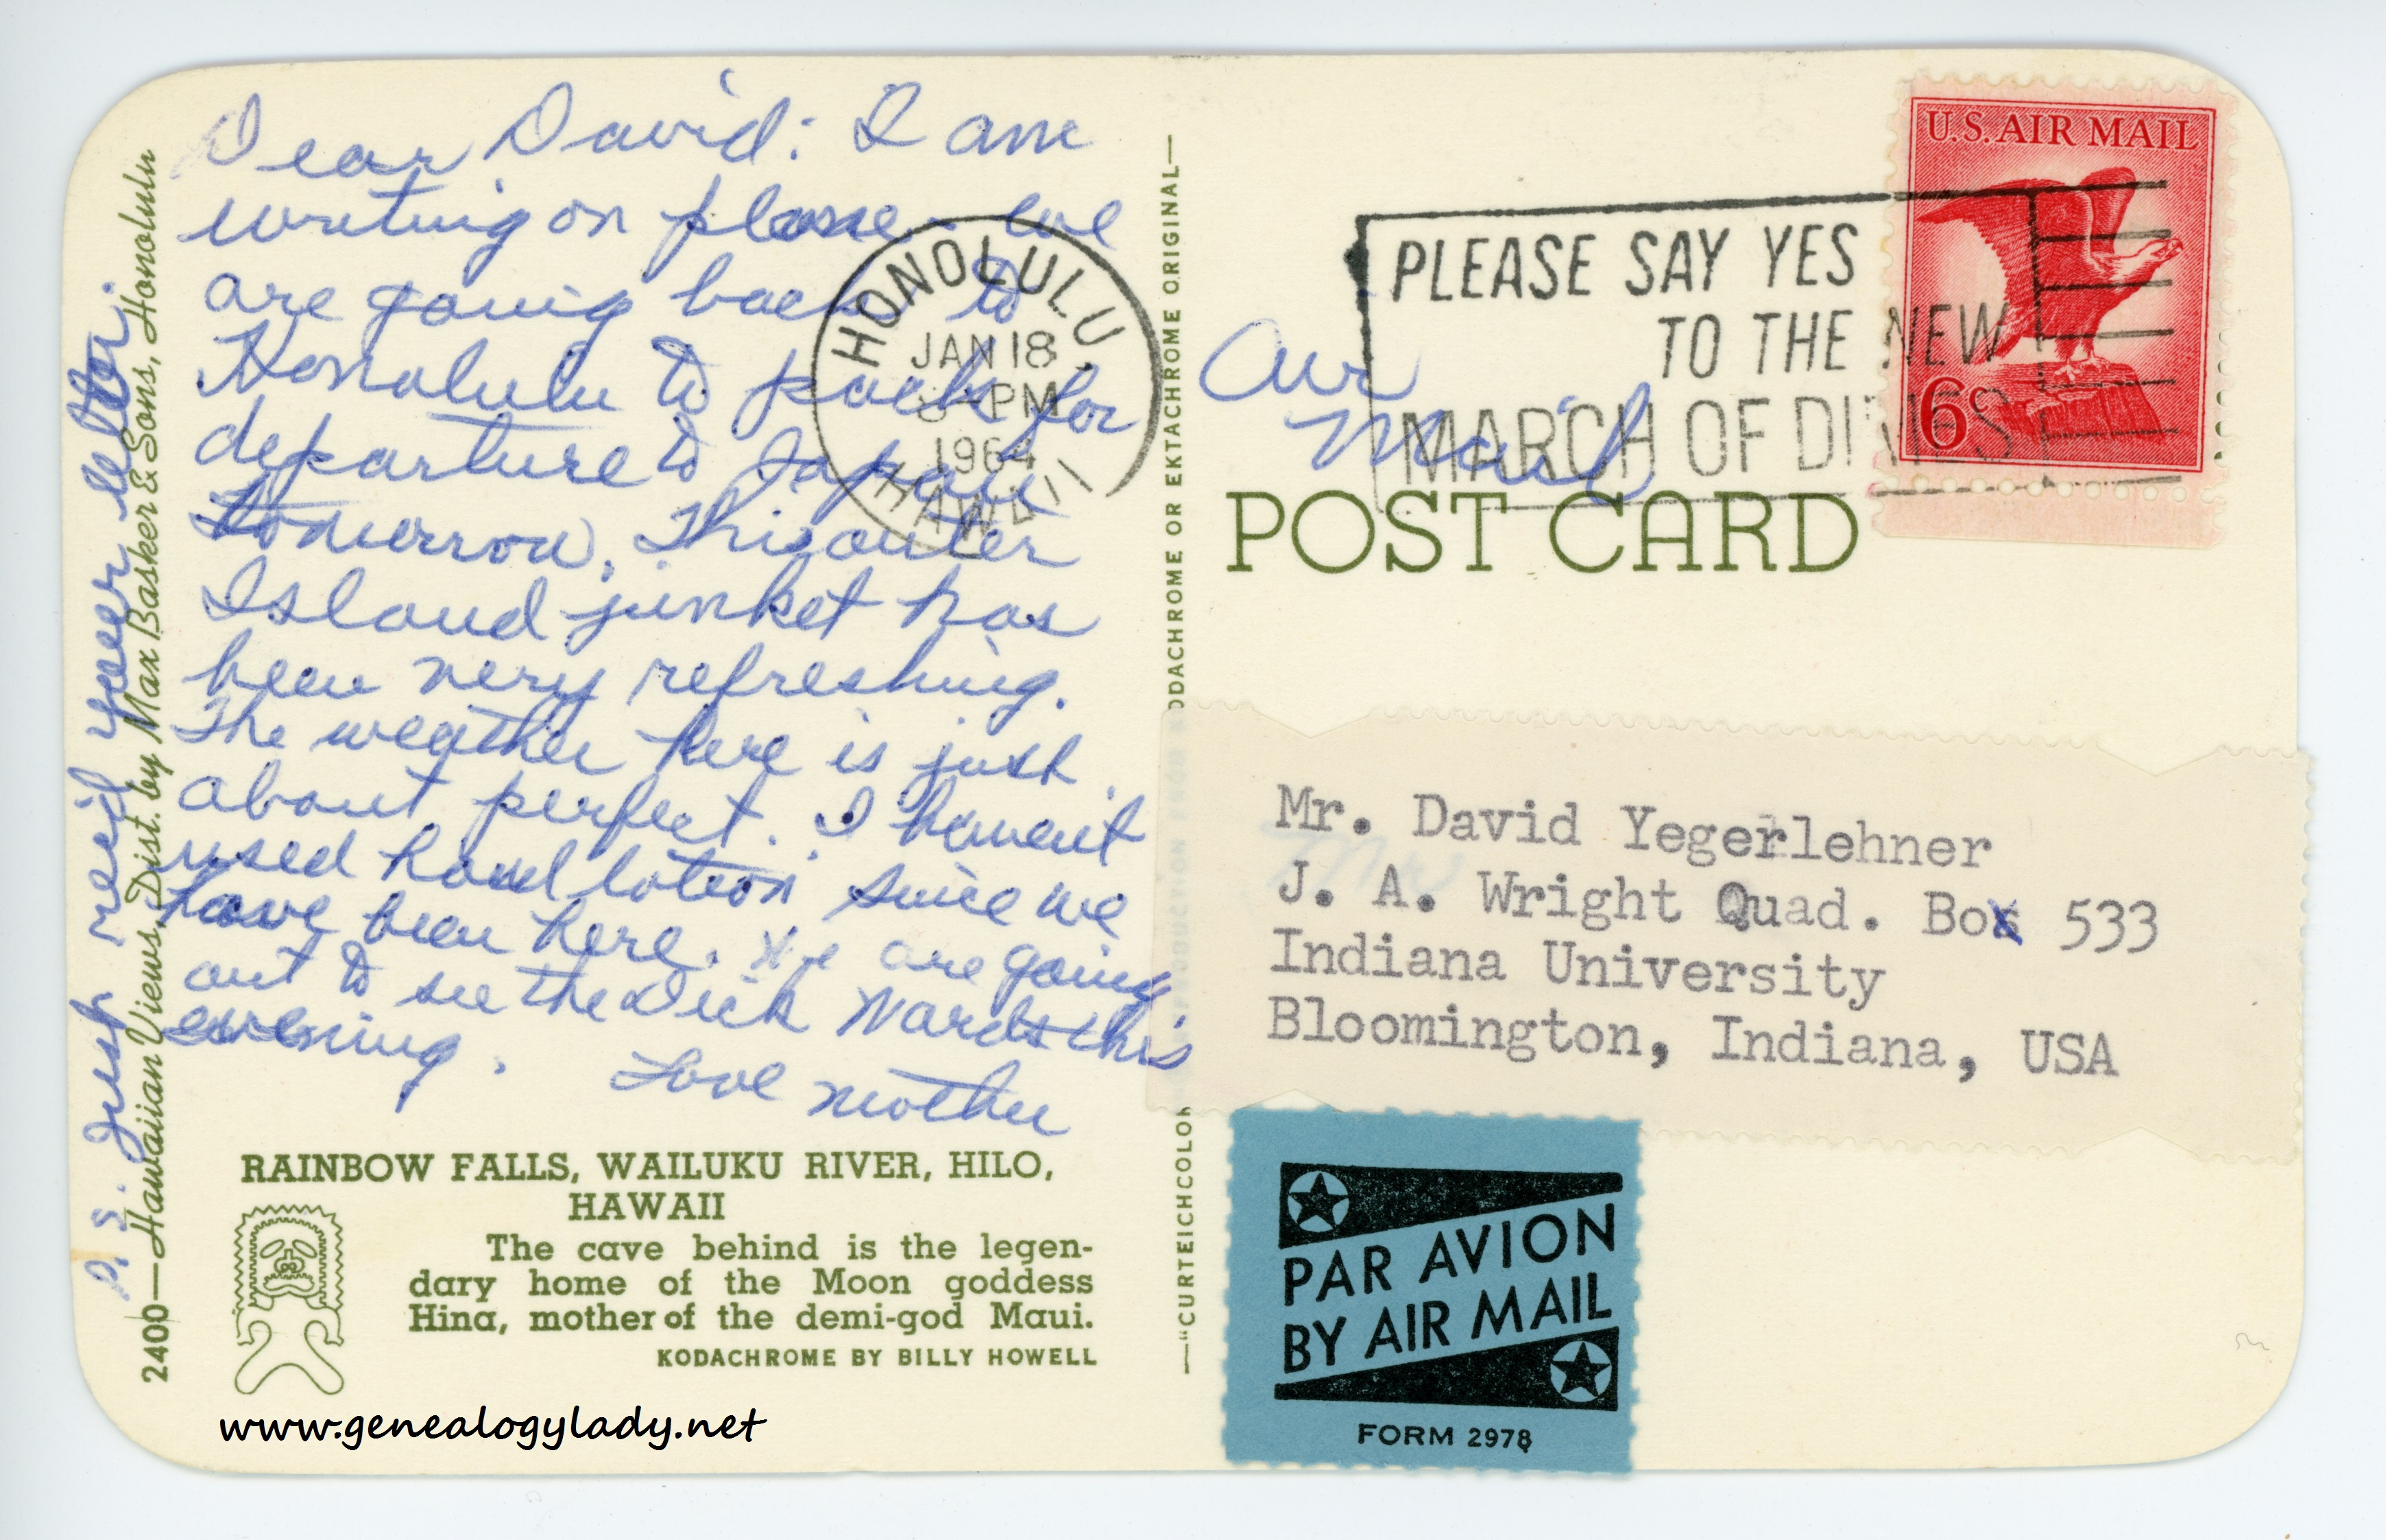 Dear David: I am
writing on plane - we
are going back to
Honolulu to pack for
departure to Japan
tomorrow. This outer
Island junket has
been very refreshing.
The weather here is just
about perfect. I haven't
used hand lotion since we
have been here. We are going
out to see the Dick Wards this
evening.
Love Mother
P.S. Just rec'd your letter.
2400—Hawaiian Views, Dist. by Max Basker & Sons, Honolulu
RAINBOW FALLS, WAILUKU RIVER, HILO,
HAWAII
The cave behind is the legen-
dary home of the Moon goddess
Hina, mother of the demi-god Maui.
KODACHROME BY BILLY HOWELL
www.genealogylady.net
HONOLULU
JAN 18
PM
1964
HAWAII
—"CURTEICHCOLOR REPRODUCTION FROM KODACHROME OR EKTACHROME ORIGINAL—
U.S. AIR MAIL
6¢
PLEASE SAY YES
TO THE NEW
MARCH OF DIMES
Air
Mail
POST CARD
Mr. David Yegerlehner
J. A. Wright Quad. Box 533
Indiana University
Bloomington, Indiana, USA
PAR AVION
BY AIR MAIL
FORM 2978